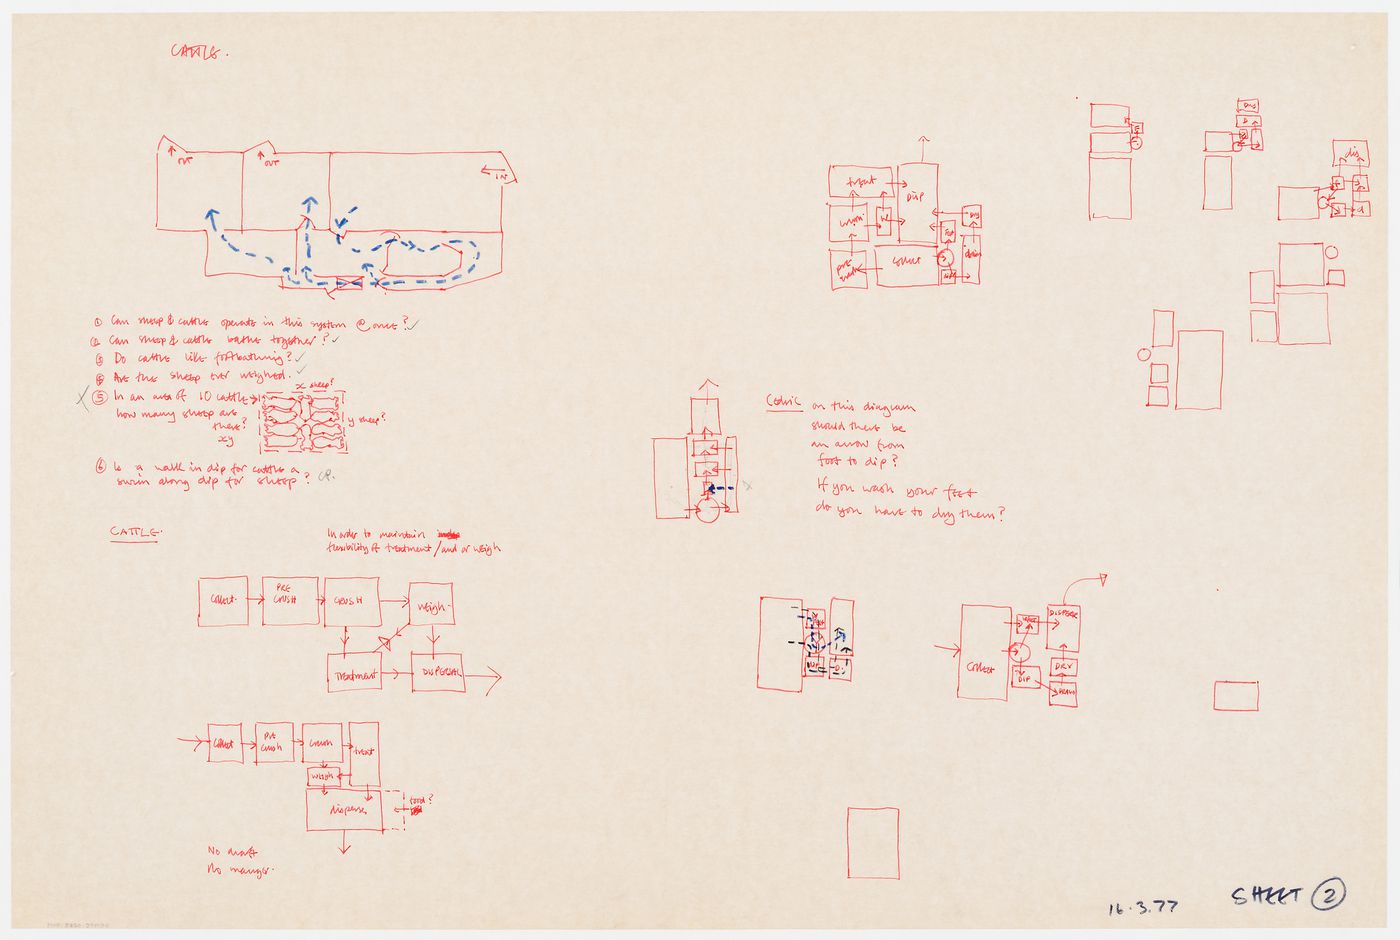 CATTLE.
OUT
OUT
IN
① Can sheep & cattle operate in this system @ once? ✓
② Can sheep & cattle bathe together? ✓
③ Do cattle like footbathing? ✓
④ Are the sheep ever weighed. ✓
X ⑤ In an area of 10 cattle
how many sheep are
there?
xy
x sheep?
y sheep?
⑥ Is a walk in dip for cattle a
swim along dip for sheep? CP.
CATTLE.
In order to maintain
flexibility of treatment / and or weigh
Collect.
PRE
CRUSH
CRUSH
Weigh.
Treatment
DISPERSAL
Collect
Pre
Crush
Crush
treat
weigh
disperse
food?
No draft
No manger.
treat
DISP
Collect
Cedric on this diagram
should there be
an arrow from
foot to dip?
If you wash your feet
do you have to dry them?
Collect
DISPERSE
DIP
DRY
dis
16.3.77
SHEET ②